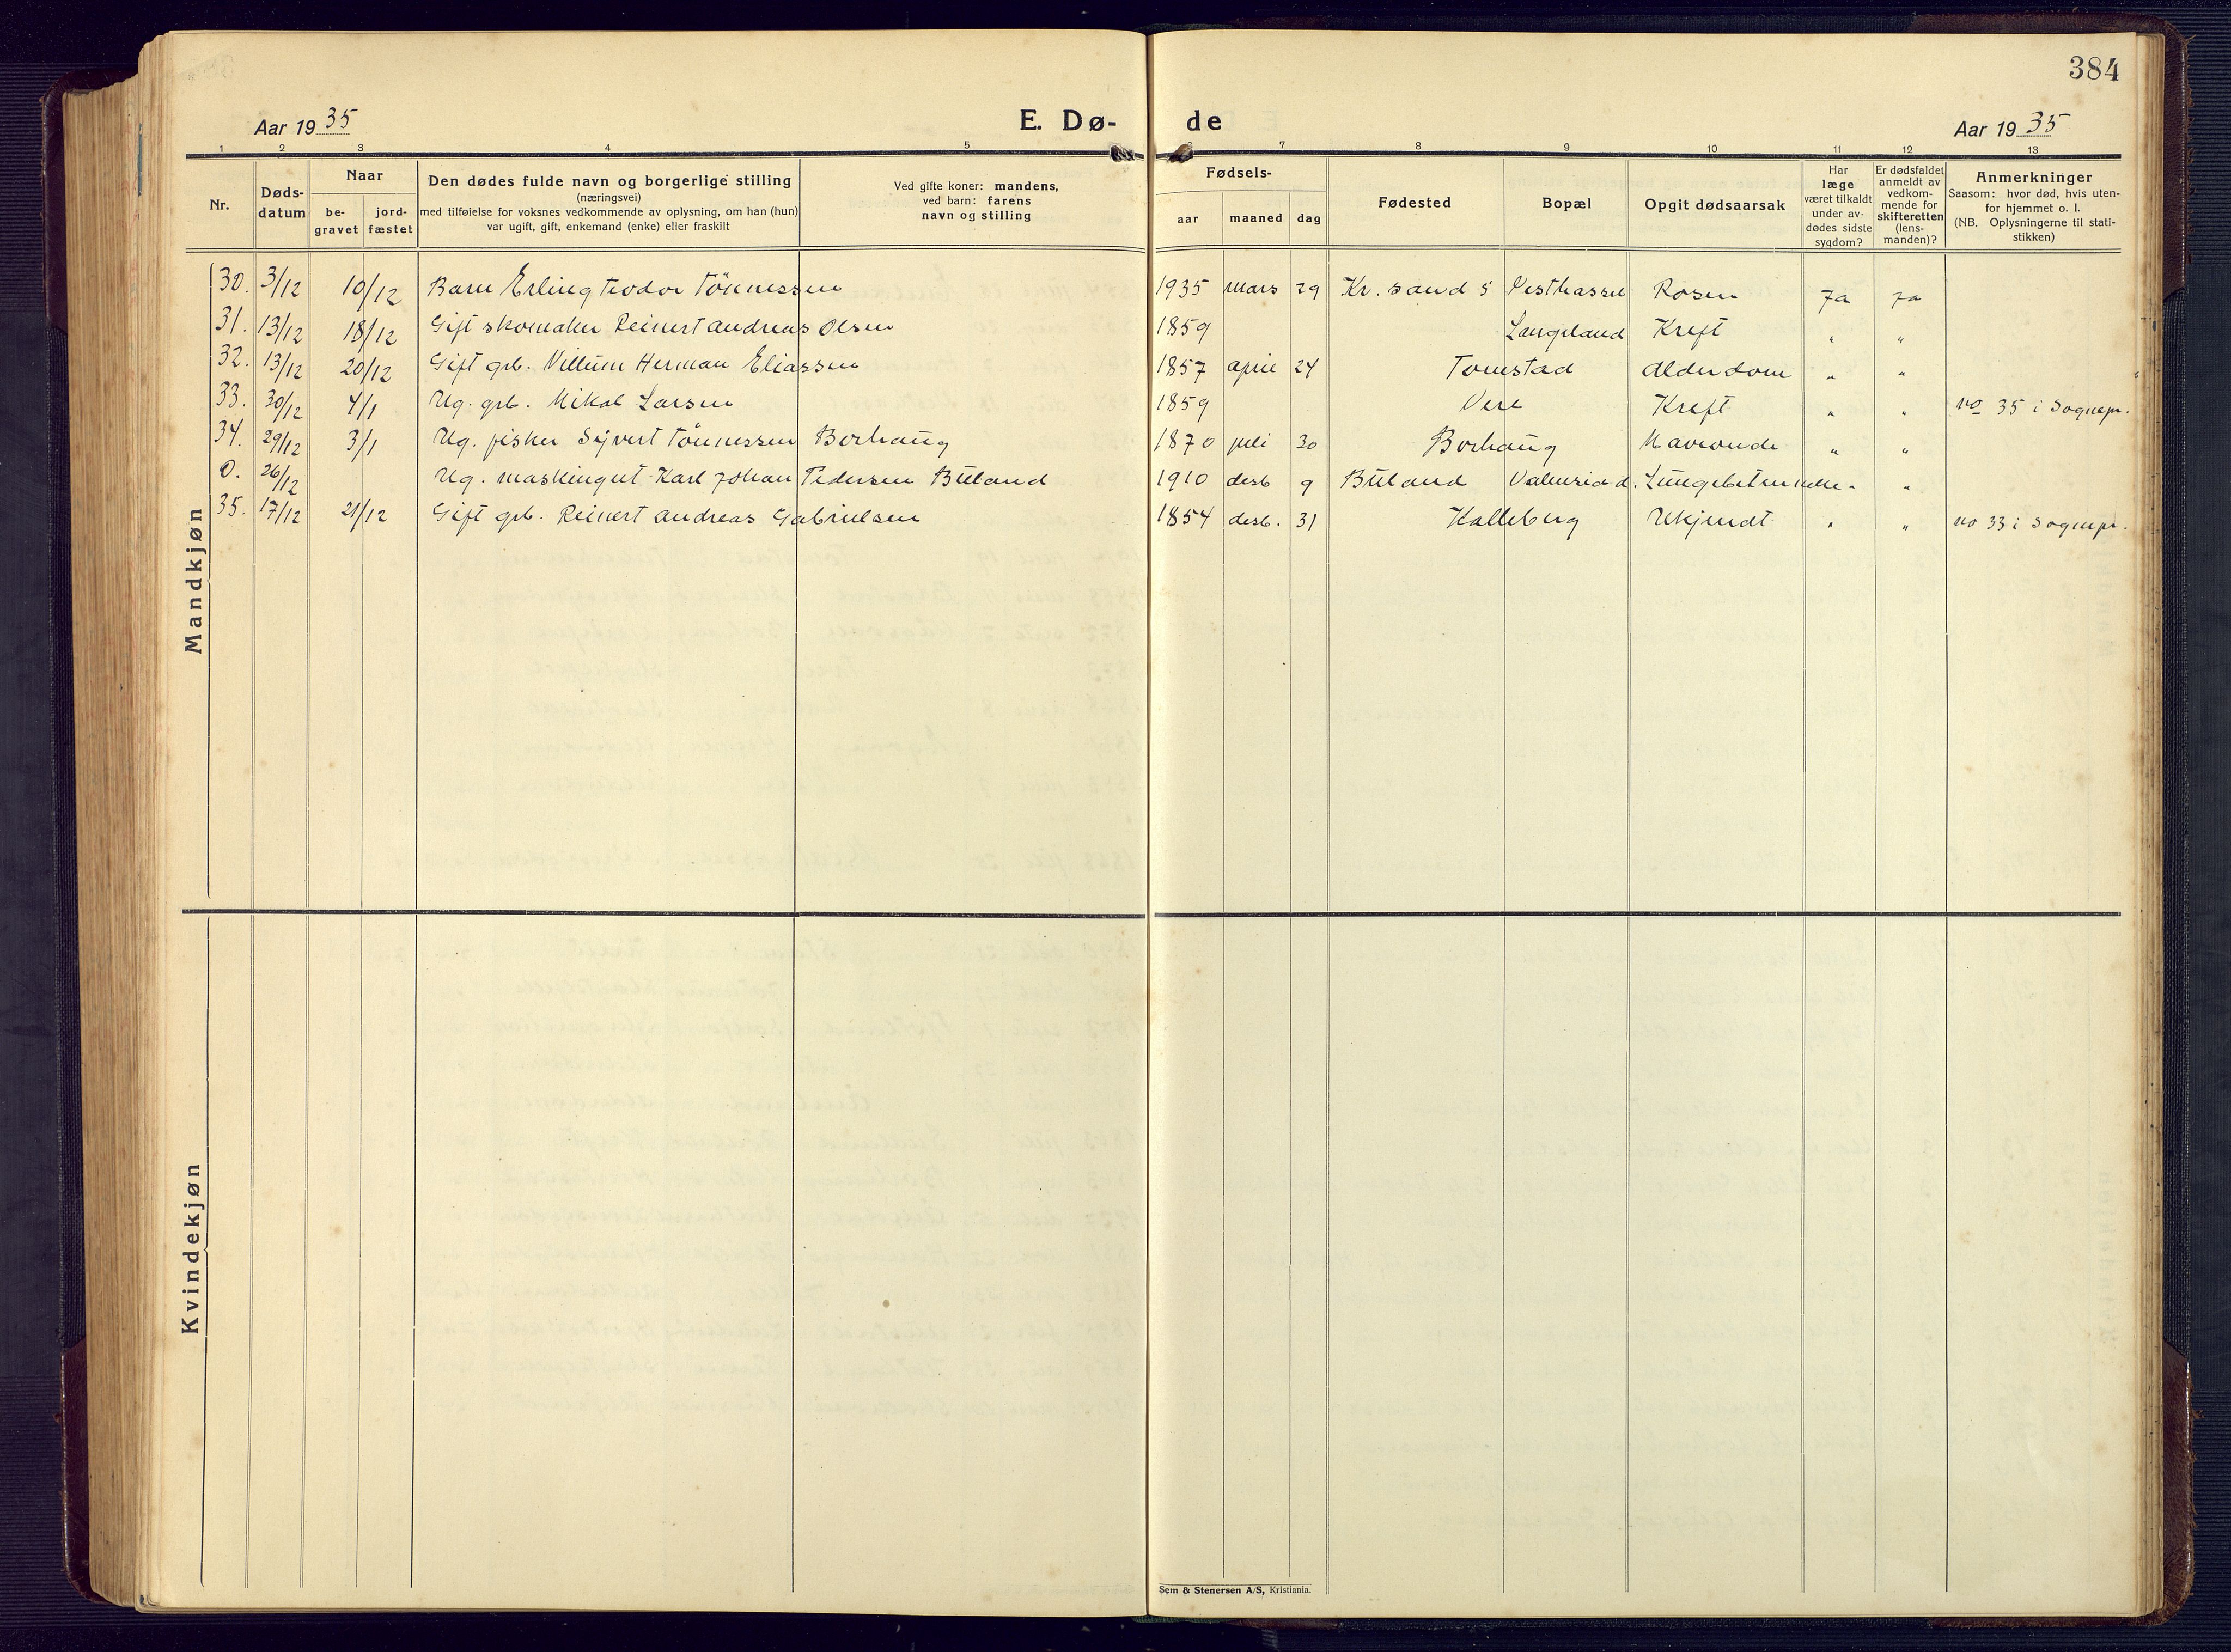 384
Aar 1935 E. Dø- de Aar 1935
1 2 3 4 5 6 7 8 9 10 11 12 13
Nr.
Døds-
datum
Naar
be-
gravet
jord-
fæstet
Den dødes fulde navn og borgerlige stilling
(næringsvei)
med tilføielse for voksnes vedkommende av oplysning, om han (hun)
var ugift, gift, enkemand (enke) eller fraskilt
Ved gifte koner: mandens,
ved barn: farens
navn og stilling
Fødsels-
aar maaned dag
Fødested
Bopæl
Opgit dødsaarsak
Har
læge
været tilkaldt
under av-
dødes sidste
sygdom?
Er dødsfaldet
anmeldt av
vedkom-
mende for
skifteretten
(lens-
manden)?
Anmerkninger
Saasom: hvor død, hvis uten-
for hjemmet o. l.
(NB. Oplysningerne til stati-
stikken)
Mandkjøn
30. 3/12 10/12 Barn Erling Teodor Tönnessen 1935 mars 29 Kr. sand S Vesthassel Rosen Ja Ja
31. 13/12 18/12 Gift skomaker Reinert Andreas Olsen 1859 Langeland Kreft " "
32. 13/12 20/12 Gift grb. Villum Herman Eliassen 1857 april 24 Tomstad Alderdom " "
33. 30/12 4/1 Ug. grb. Mikal Larsen 1859 Vere Kreft " " no 35 i Sognepr.
34. 29/12 3/1 Ug. fisker Sÿvert Tönnessen Borhaug 1870 juli 30 Borhaug " "
0. 26/12 Ug. maskingut Karl Johan Pedersen Büland 1910 desb 9 Büland Lungebetennelse " "
35. 17/12 21/12 Gift grb. Reinert Andreas Gabrielsen 1854 desb. 31 Kalleberg Ukjendt " " no 33 i Sognepr.
Kvindekjøn
Sem & Stenersen A/S, Kristiania.